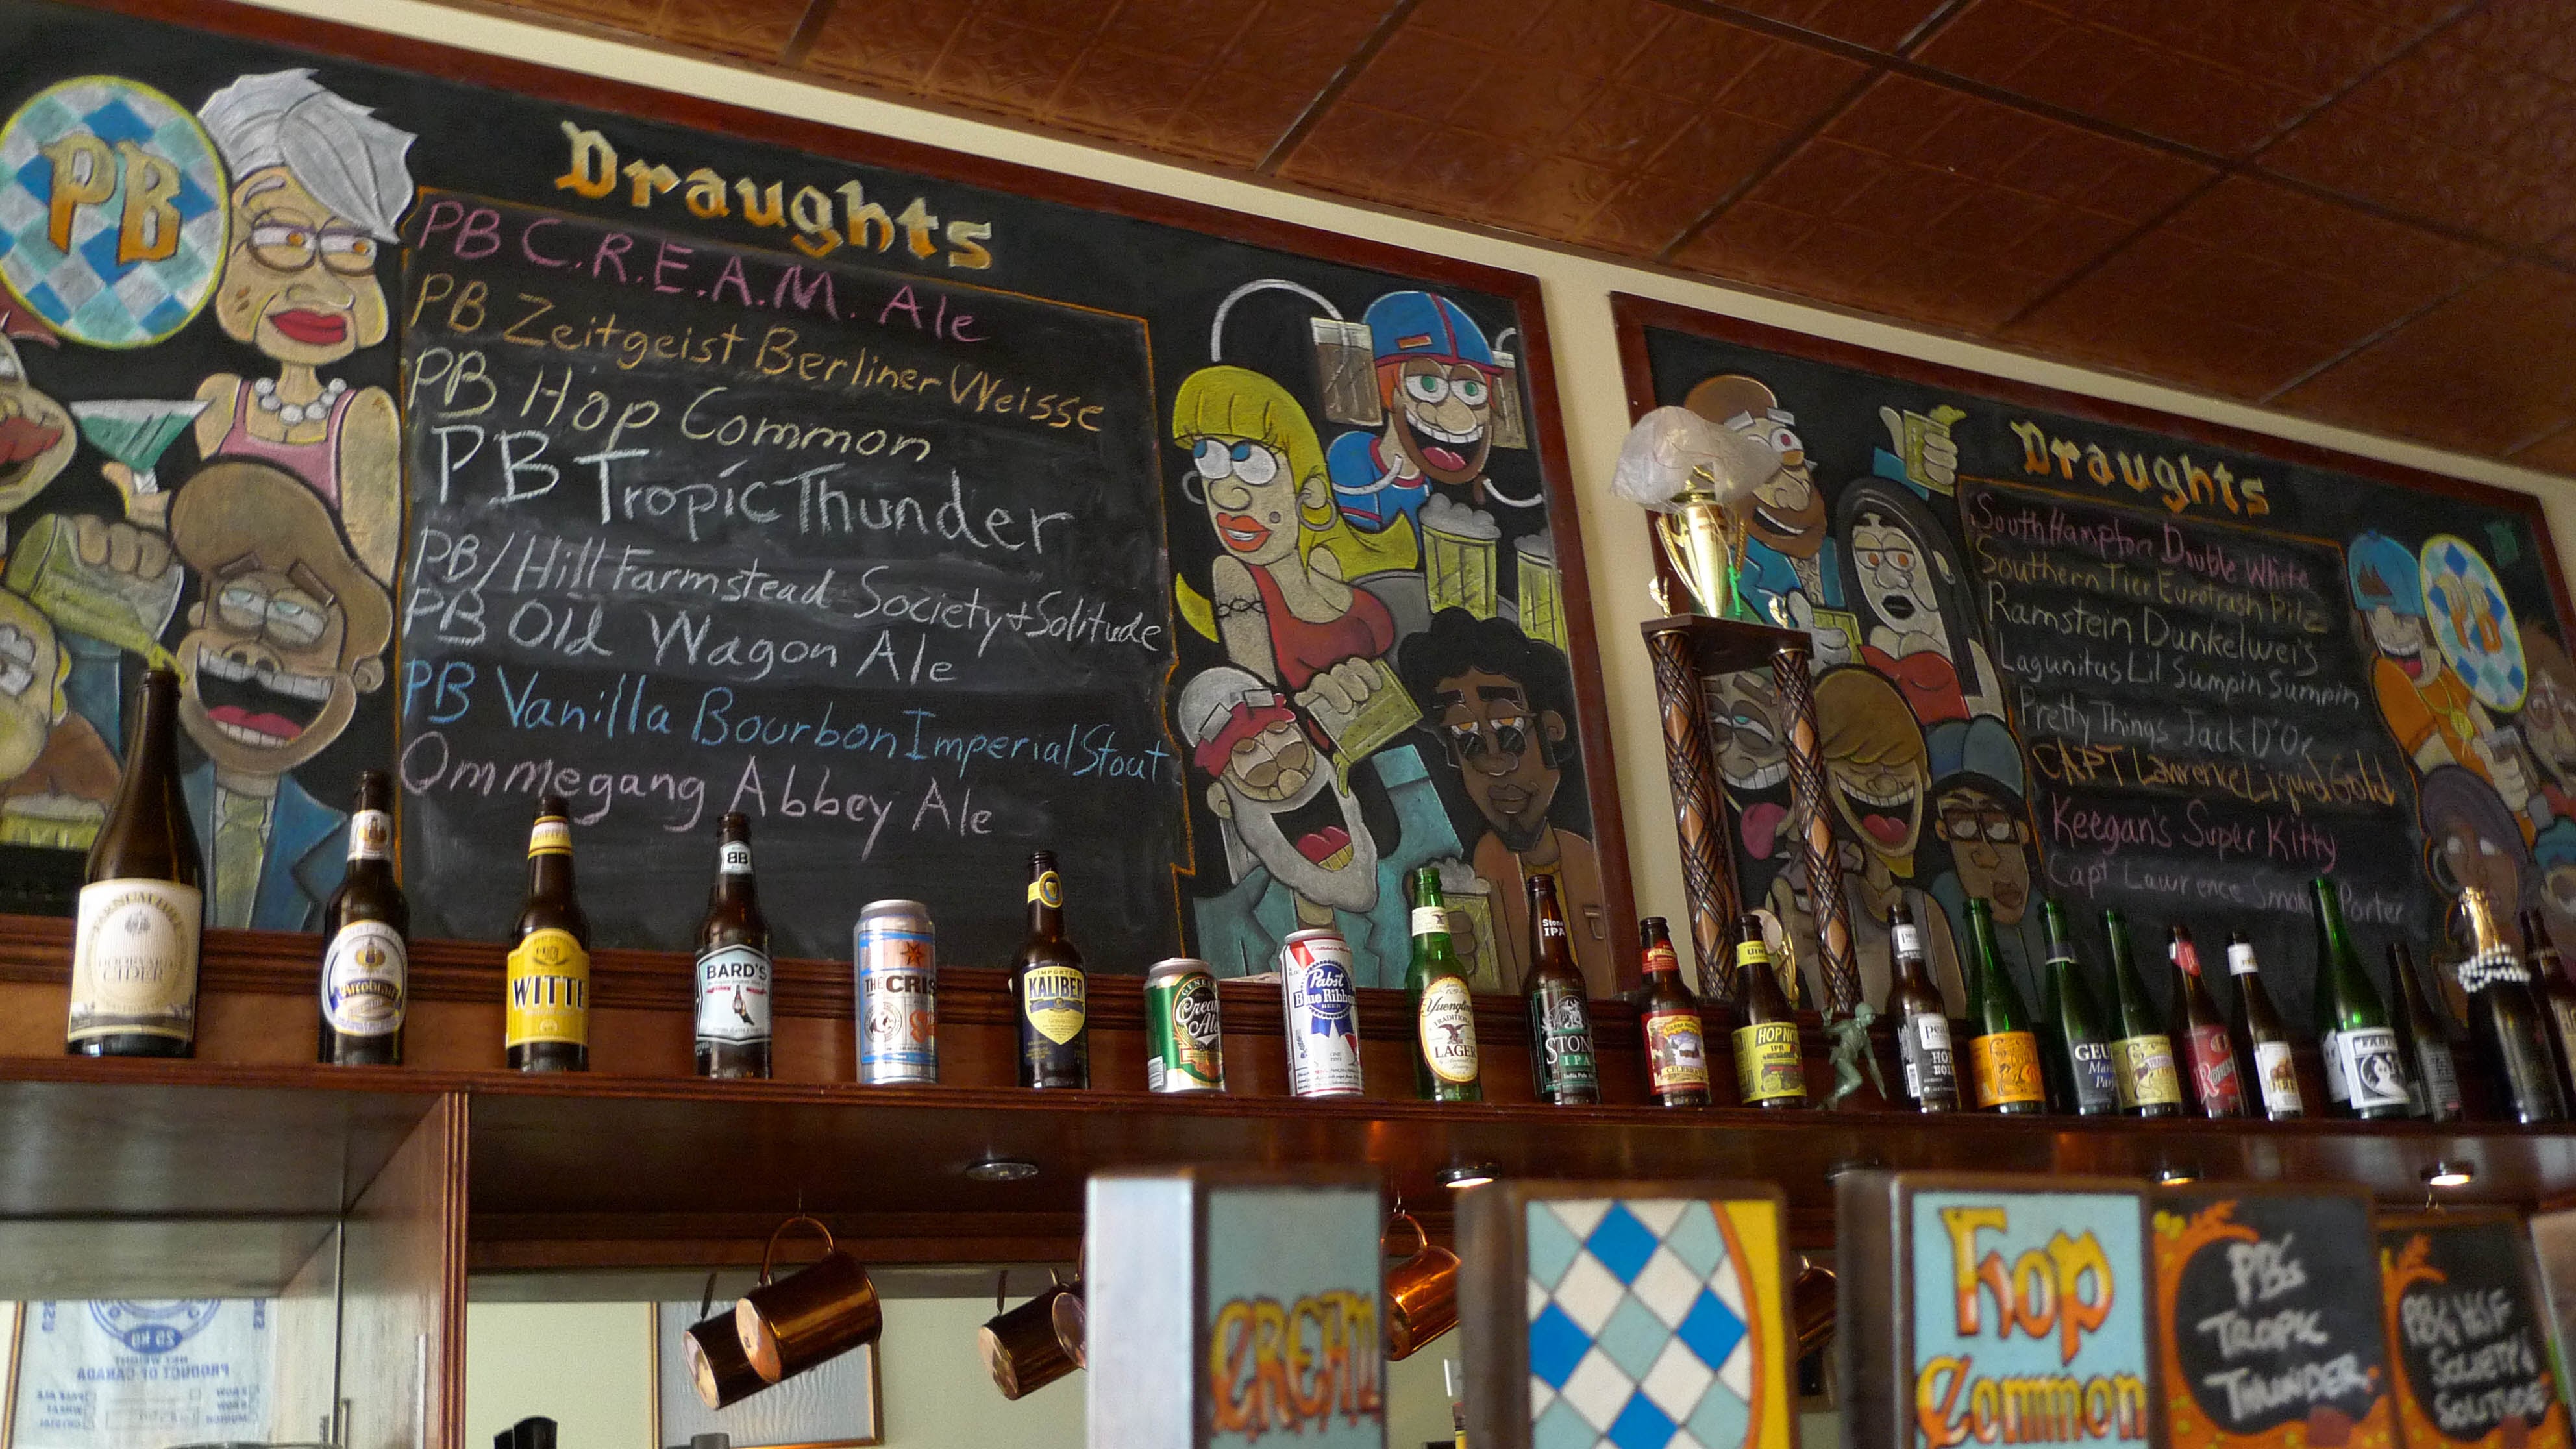 PB
Draughts
PB C.R.E.A.M. Ale
PB Zeitgeist Berliner Weisse
PB Hop Common
PB Tropic Thunder
PB/Hill Farmstead Society+Solitude
PB Old Wagon Ale
PB Vanilla Bourbon Imperial Stout
Ommegang Abbey Ale
Draughts
SouthHampton Double White
Southern Tier Eurotrash Pilz
Ramstein Dunkelweis
Lagunitas Lil Sumpin Sumpin
Pretty Things Jack D'Or
CAPT Lawrence Liquid Gold
Keegan's Super Kitty
Capt Lawrence Smoke Porter
PB
CIDER
WITTE
BB
BARD'S
THE CRIS
IMPORTED
KALIBER
Cream
Ale
Pabst
Blue Ribbon
BEER
Yuengling
TRADITION
LAGER
Stone
IPA
STON
IPA
India Pale
HOP NO
IPA
GEU
Mari
Par
CREAM
Hop
Common
PB's
TROPIC
THUNDER
PB & HSF
SOCIETY &
SOLITUDE
25 KG
NET WEIGHT
PRODUCT OF CANADA